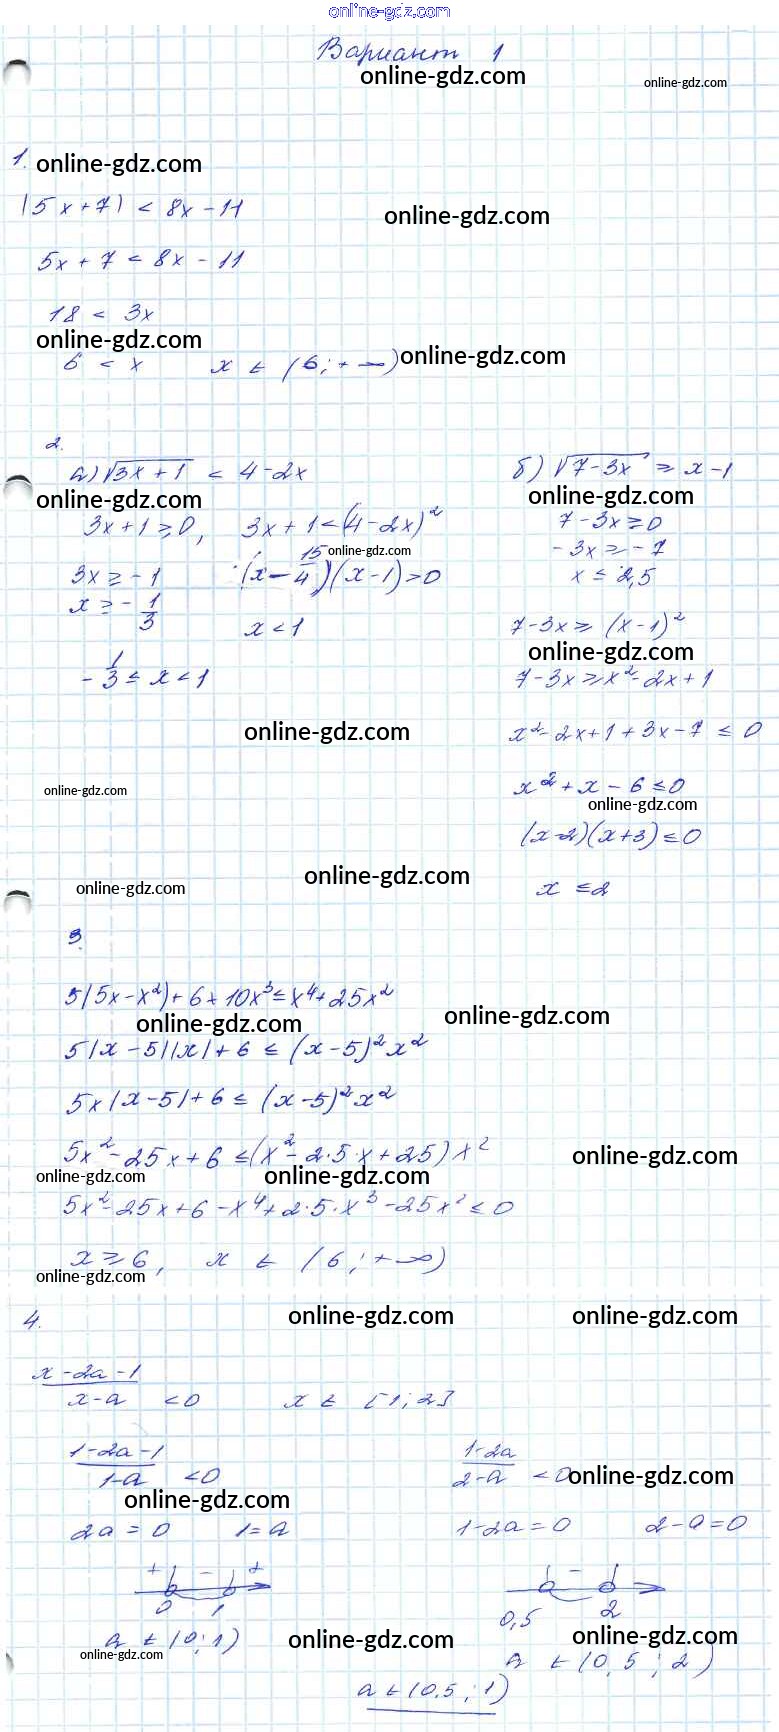 online-gdz.com
Вариант 1
online-gdz.com
online-gdz.com
1.
online-gdz.com
|5x+7| < 8x-11
online-gdz.com
5x+7 < 8x-11
18 < 3x
online-gdz.com
6 < x    x ∈ (6; +∞)
online-gdz.com
2.
а) √3x+1 < 4-2x
online-gdz.com
3x+1 ≥ 0,    3x+1 < (4-2x)²
online-gdz.com
3x ≥ -1    (x - 15/4)(x-1) > 0
x ≥ -1/3    x < 1
-1/3 ≤ x < 1
online-gdz.com
online-gdz.com
б) √7-3x ≥ x-1
online-gdz.com
7-3x ≥ 0
-3x ≥ -7
x ≤ 2,5
7-3x ≥ (x-1)²
online-gdz.com
7-3x ≥ x²-2x+1
x²-2x+1+3x-7 ≤ 0
x²+x-6 ≤ 0
online-gdz.com
(x-2)(x+3) ≤ 0
online-gdz.com
online-gdz.com
x ≤ 2
3.
5|5x-x²|+6+10x³ ≤ x⁴+25x²
online-gdz.com
online-gdz.com
5|x-5||x|+6 ≤ (x-5)²x²
5x|x-5|+6 ≤ (x-5)²x²
5x²-25x+6 ≤ (x²-2·5·x+25)x²
online-gdz.com
online-gdz.com
online-gdz.com
5x²-25x+6-x⁴+2·5·x³-25x² ≤ 0
x ≥ 6,    x ∈ (6; +∞)
online-gdz.com
4.
online-gdz.com
online-gdz.com
x-2a-1/x-a < 0    x ∈ [1; 2]
1-2a-1/1-a < 0    1-2a/2-a < 0
online-gdz.com
online-gdz.com
2a = 0    1 = a    1-2a = 0    2-a = 0
+ - +    -
0 1    0,5 2
a ∈ (0; 1)
online-gdz.com
online-gdz.com
online-gdz.com
a ∈ (0,5; 2)
a ∈ (0,5; 1)